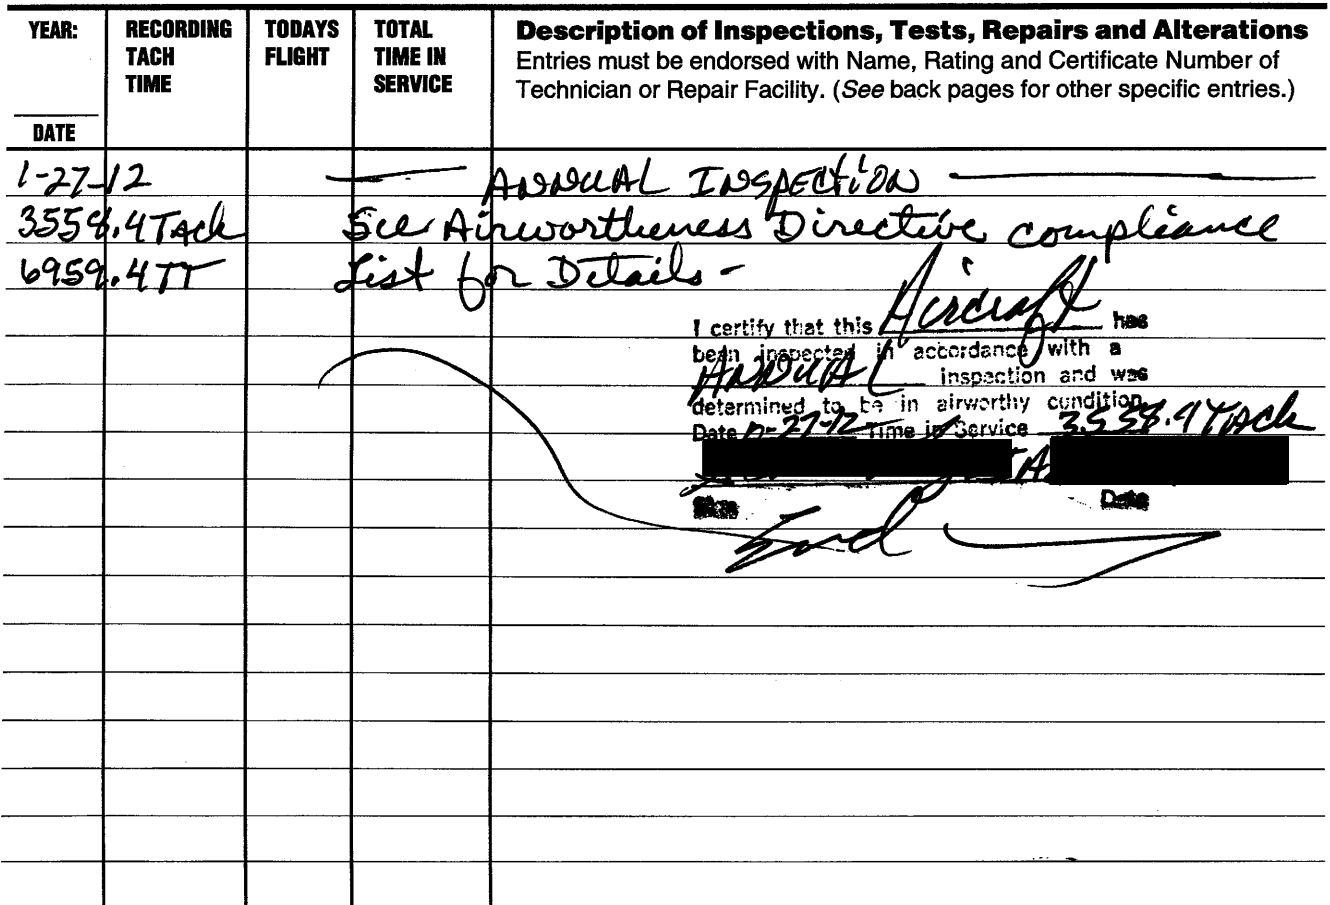 YEAR: RECORDING TACH TIME TODAYS FLIGHT TOTAL TIME IN SERVICE
DATE
Description of Inspections, Tests, Repairs and Alterations
Entries must be endorsed with Name, Rating and Certificate Number of
Technician or Repair Facility. (See back pages for other specific entries.)
1-27-12 ANNUAL INSPECTION
3558.4 Tach See Airwortheness Directive compliance
6959.4 TT List for Details -
I certify that this Aircraft has
been inspected in accordance with a
ANNUAL inspection and was
determined to be in airworthy condition
Date 1-27-12 Time in Service 3558.4 Tach
Date
End